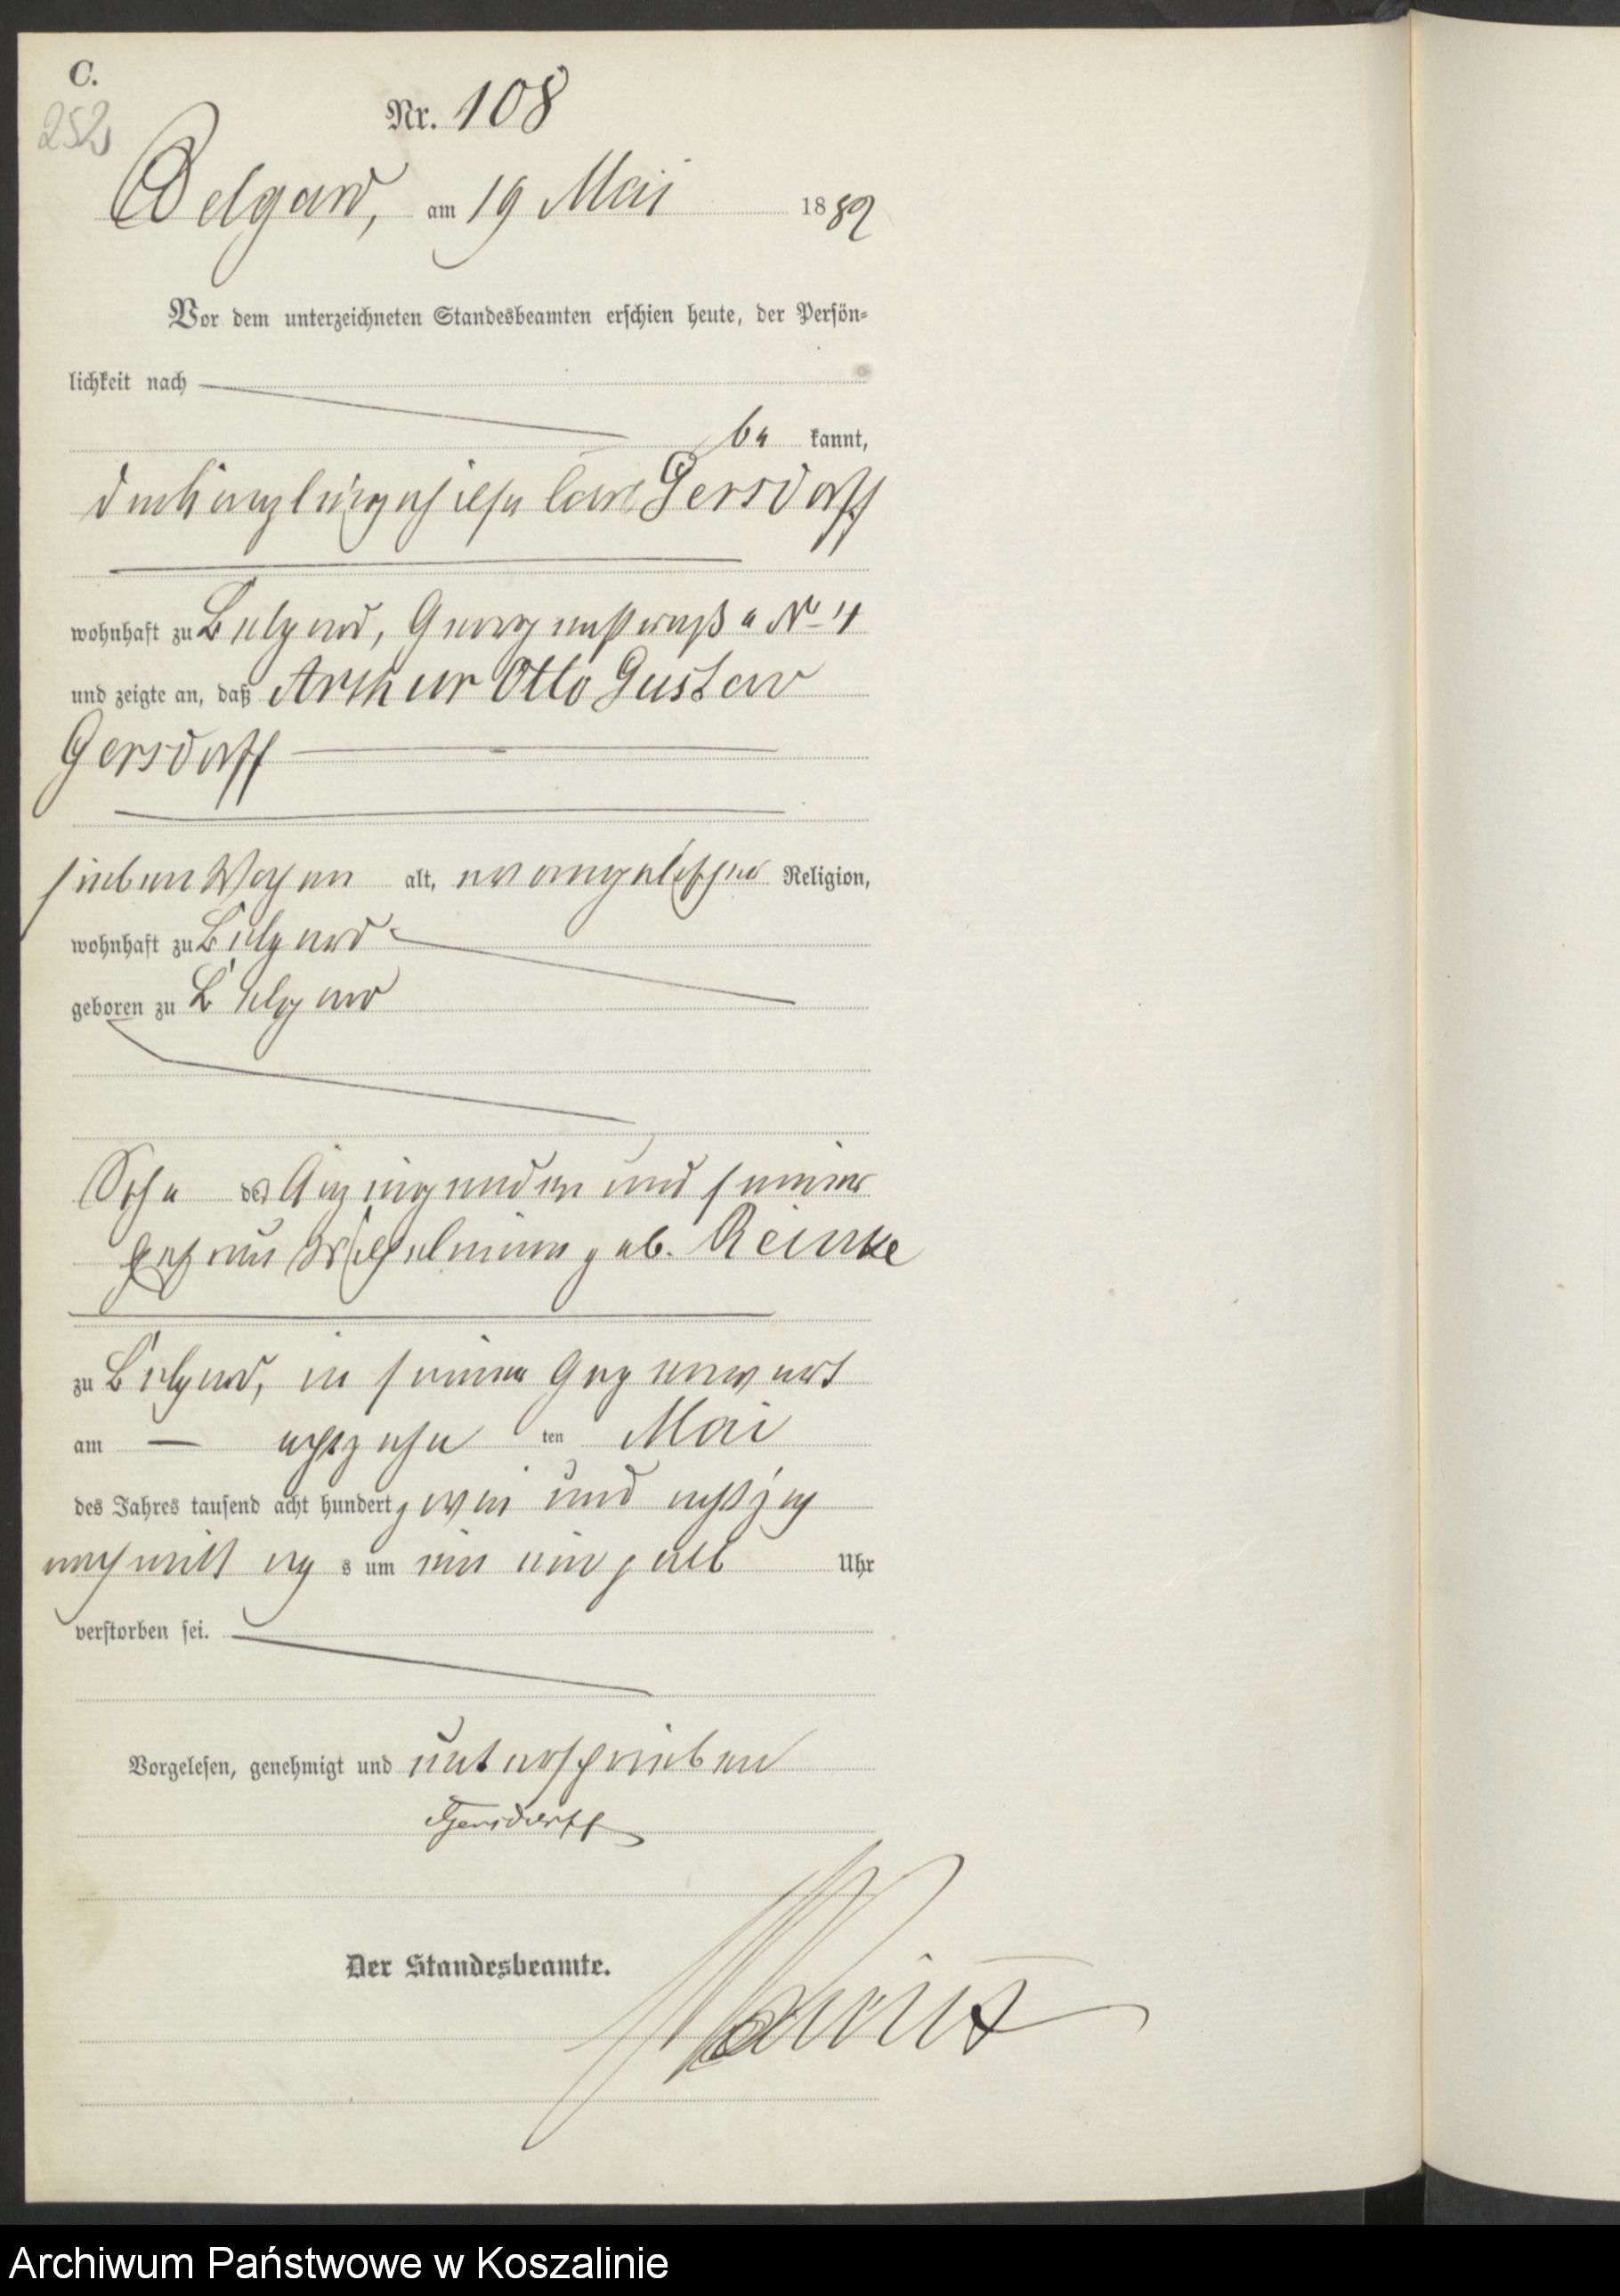 C.
252
Nr. 108
Belgard, am 19 Mai 1882
Vor dem unterzeichneten Standesbeamten erschien heute, der Persön-
lichkeit nach
be kannt,
der Kanzleigehilfe Carl Gersdorff
wohnhaft zu Belgard, Georgenstraße No 4
und zeigte an, daß Arthur Otto Gustav
Gersdorff
sieben Wochen alt, evangelischer Religion,
wohnhaft zu Belgard
geboren zu Belgard
Sohn des Anzeigenden und seiner
Ehefrau Wilhelmine geb. Reinke
zu Belgard, in seiner Gegenwart
am — achtzehn ten Mai
des Jahres tausend acht hundert zwei und achtzig
nachmittag s um ein einhalb Uhr
verstorben sei.
Vorgelesen, genehmigt und unterschrieben
Gersdorff
Der Standesbeamte.
Archiwum Państwowe w Koszalinie